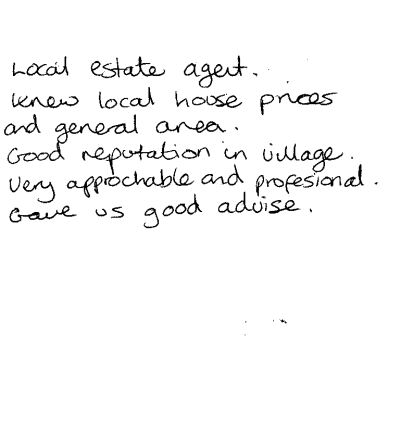 Local estate agent.
Knew local house prices
and general area.
Good reputation in village.
Very approchable and profesional.
Gave us good advise.